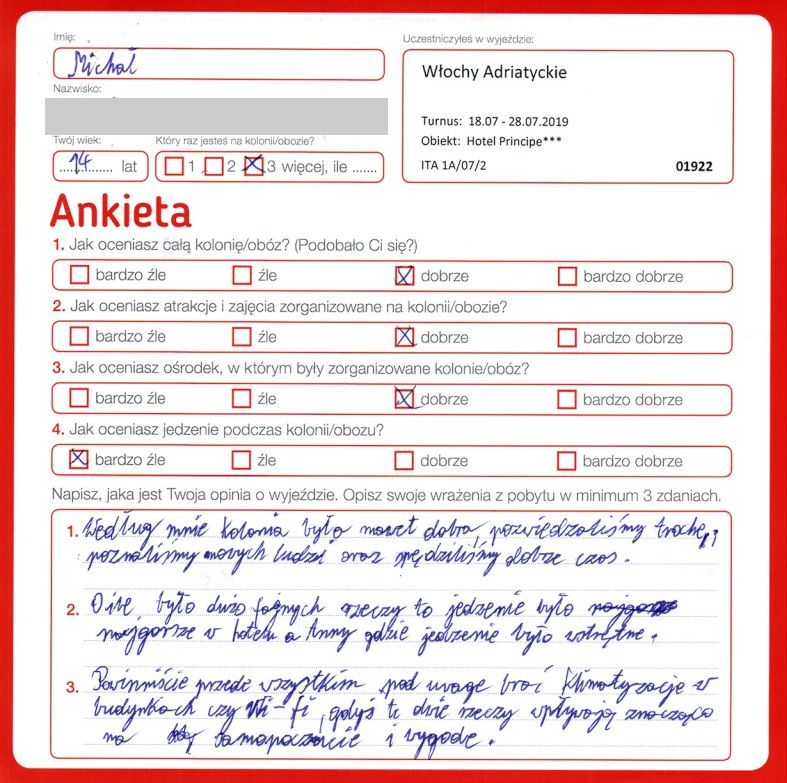 Imię:
Michał
Nazwisko:
Twój wiek:
14 lat
Który raz jesteś na kolonii/obozie?
1 2 3 więcej, ile .......
Uczestniczyłeś w wyjeździe:
Włochy Adriatyckie
Turnus: 18.07 - 28.07.2019
Obiekt: Hotel Principe***
ITA 1A/07/2 01922
Ankieta
1. Jak oceniasz całą kolonię/obóz? (Podobało Ci się?)
bardzo źle źle dobrze bardzo dobrze
2. Jak oceniasz atrakcje i zajęcia zorganizowane na kolonii/obozie?
bardzo źle źle dobrze bardzo dobrze
3. Jak oceniasz ośrodek, w którym były zorganizowane kolonie/obóz?
bardzo źle źle dobrze bardzo dobrze
4. Jak oceniasz jedzenie podczas kolonii/obozu?
bardzo źle źle dobrze bardzo dobrze
Napisz, jaka jest Twoja opinia o wyjeździe. Opisz swoje wrażenia z pobytu w minimum 3 zdaniach.
1. Według mnie kolonia była nawet dobra, pozwiedzaliśmy trochę,
poznaliśmy nowych ludzi oraz spędziliśmy dobrze czas.
2. O ile było dużo fajnych rzeczy to jedzenie było
najgorsze w hotelu a Anny gdzie jedzenie było wstrętne.
3. Powinniście przede wszystkim pod uwagę brać klimatyzację w
budynkach czy Wi-fi, gdyż te dwie rzeczy wpływają znacząco
na samopoczucie i wygodę.